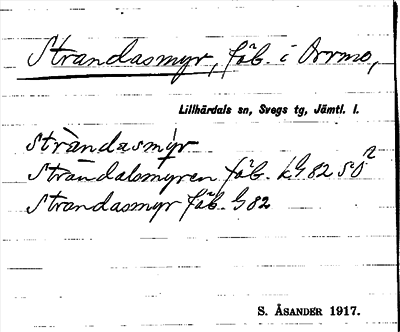 Strandasmyr, fäb. i Orrmo,
Lillhärdals sn, Svegs tg, Jämtl. l.
stràndasmy̍r
Strandalsmyren fäb. LG 82 SO²
Strandasmyr fäb. G 82
S. ÅSANDER 1917.